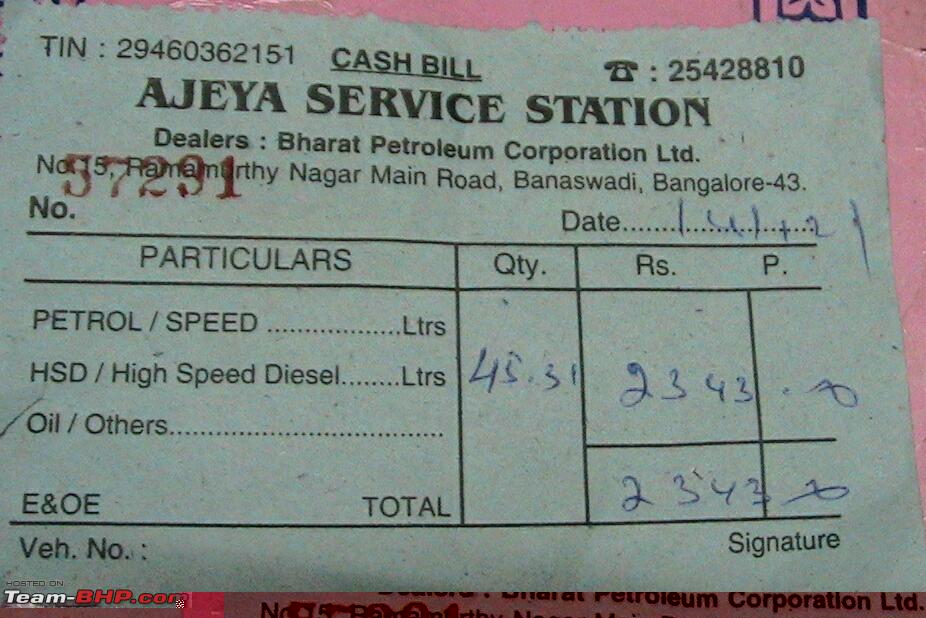 TIN : 29460362151 CASH BILL ☎ : 25428810
AJEYA SERVICE STATION
Dealers : Bharat Petroleum Corporation Ltd.
No. 15, Ramamurthy Nagar Main Road, Banaswadi, Bangalore-43.
57291
No. Date..............................
PARTICULARS Qty. Rs. P.
PETROL / SPEED ..................Ltrs
HSD / High Speed Diesel........Ltrs 45.31 2343
Oil / Others.....................................
E&OE TOTAL 2343
Veh. No. : Signature
HOSTED ON
Team-BHP.com
Dealers : Bharat Petroleum Corporation Ltd.
No. 15, Ramamurthy Nagar Main Road